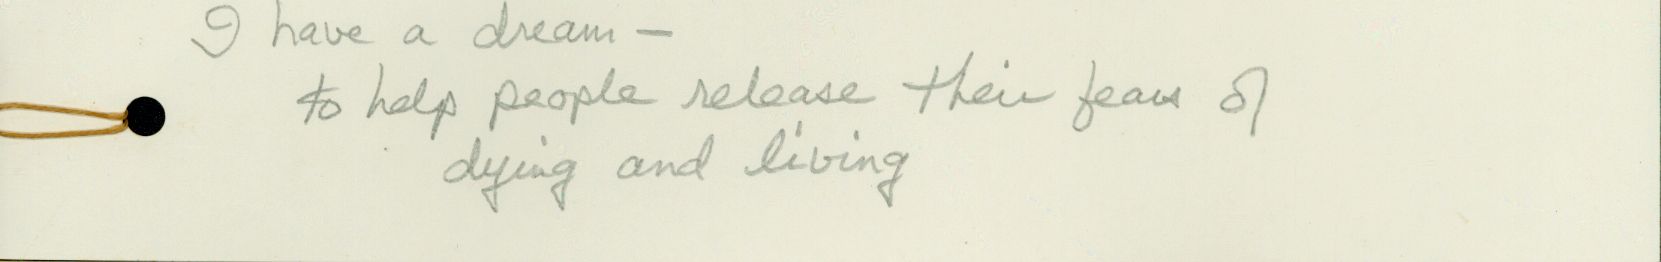 I have a dream —
to help people release their fears of
dying and living